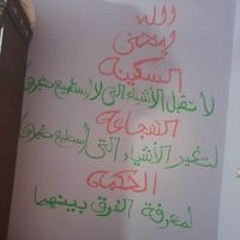 الله
امنحنى
السكينة
لأتقبل الأشياء التى لا أستطيع تغيرها
الشجاعة
لتغير الأشياء التى أستطيع تغيرها
الحكمة
لمعرفة الفرق بينهما